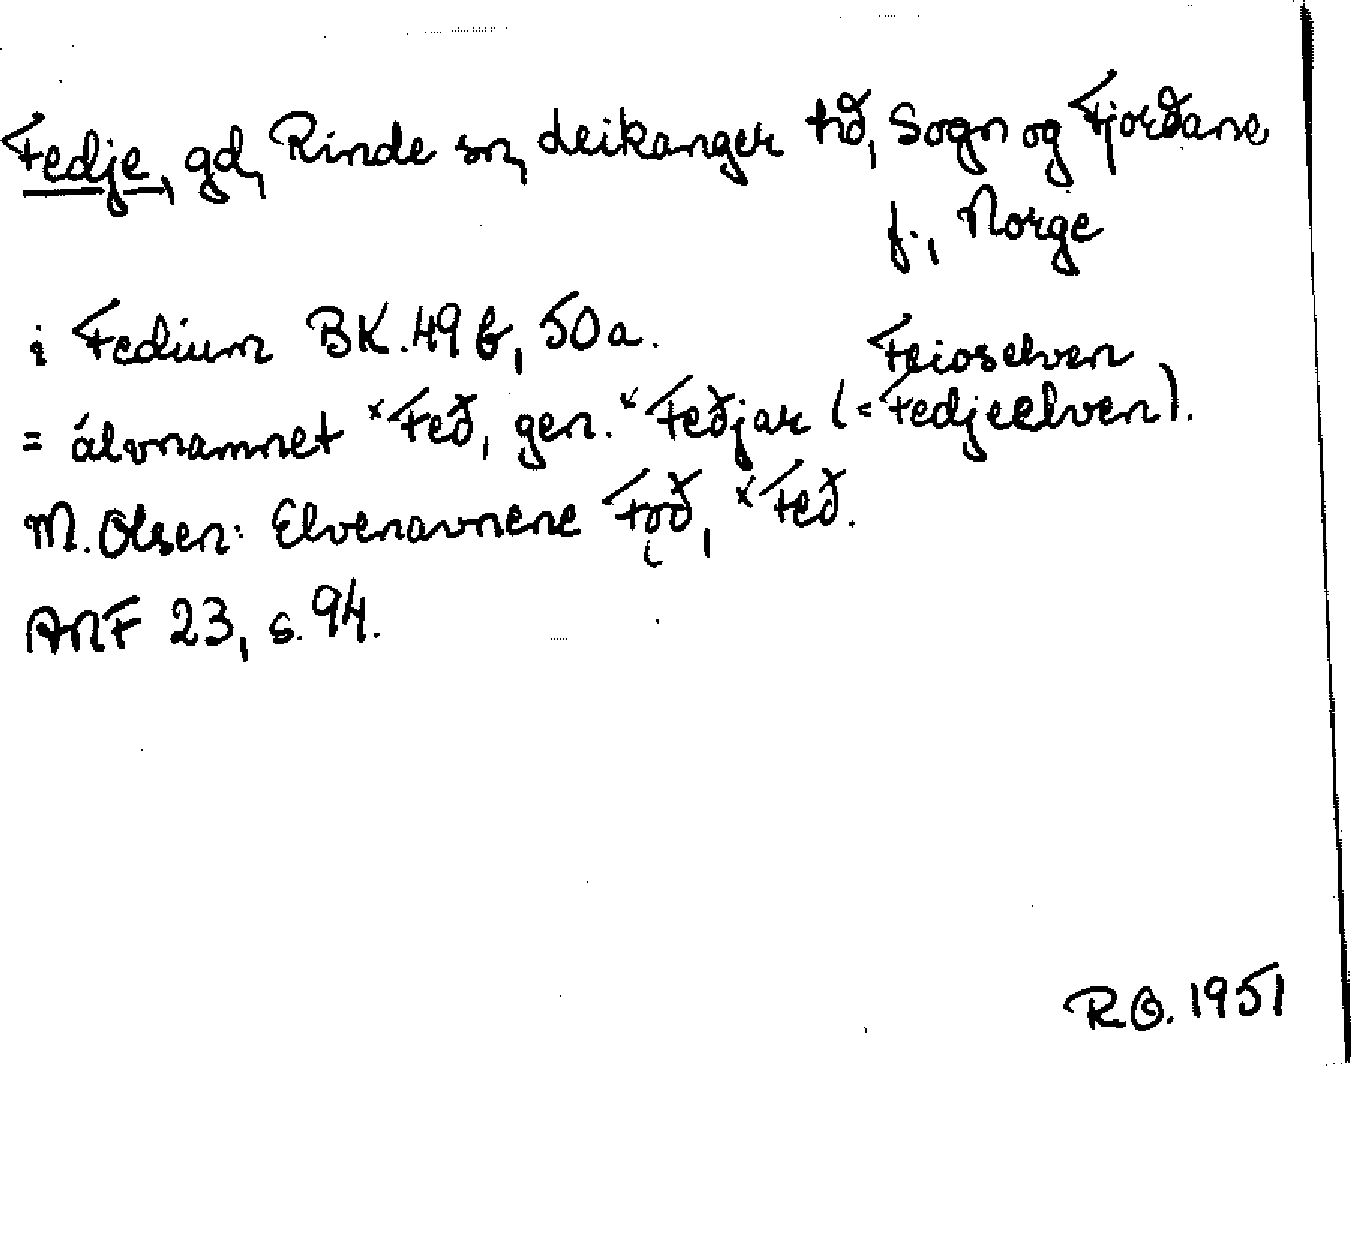 Fedje, gd, Rinde sn, Leikanger hð, Sogn og Fjorðane
f., Norge
i Fedium BK. 49 b, 50 a.
Feioselven
= álvnamnet *Feð, gen. *Feðjar (= Fedjeelven).
M. Olsen: Elvenavnene Fǫð, *Feð.
ANF 23, s. 94.
R.O. 1951